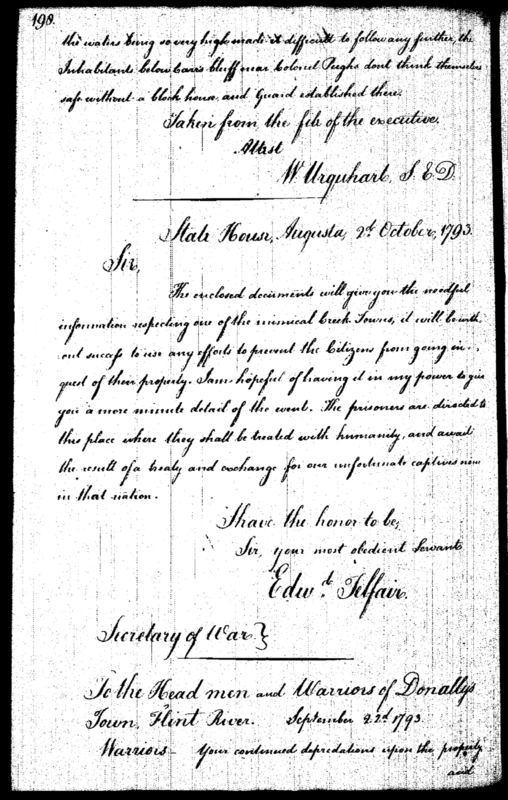 198.
the waters being so very high made it difficult to follow any further, the
Inhabitants below Carrs bluff near Colonel Pughs dont think themselves
safe without a block house and Guard established there.
Taken from the file of the executive.
Attest
W. Urquhart, S. E. D.
State House, Augusta, 2d October, 1793.
Sir,
The enclosed documents will give you the needful
information respecting one of the inimical Creek Towns, it will be with
out success to use any efforts to prevent the Citizens from going in
quest of their property. I am hopeful of having it in my power to give
you a more minute detail of the event. The prisoners are directed to
this place where they shall be treated with humanity, and await
the result of a treaty and exchange for our unfortunate captives now
in that nation.
I have the honor to be,
Sir, your most obedient Servant
Edwd. Telfair.
Secretary of War }
To the Head men and Warriors of Donallys
Town, Flint River. September 22d 1793.
Warriors — Your continued depredations upon the property
and